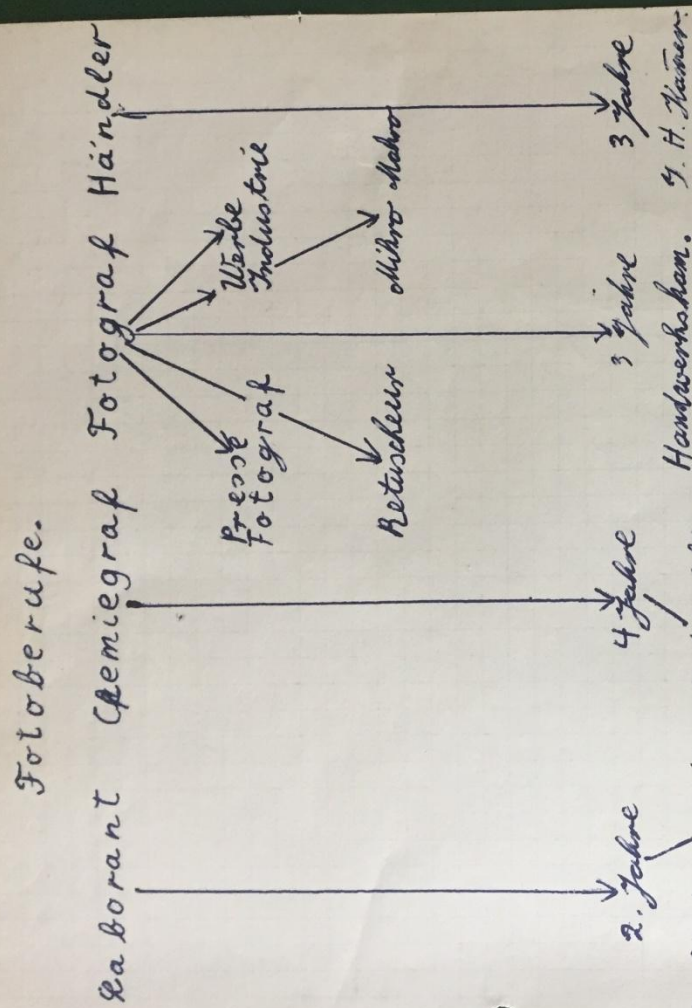 Fotoberufe.
Laborant Chemiegraf Fotograf Händler
Presse Werbe
Fotograf Industrie
Retuscheur Mikro Makro
2. Jahre 4 Jahre 3 Jahre 3 Jahre
Handwerkskam. J. H. Kamer.